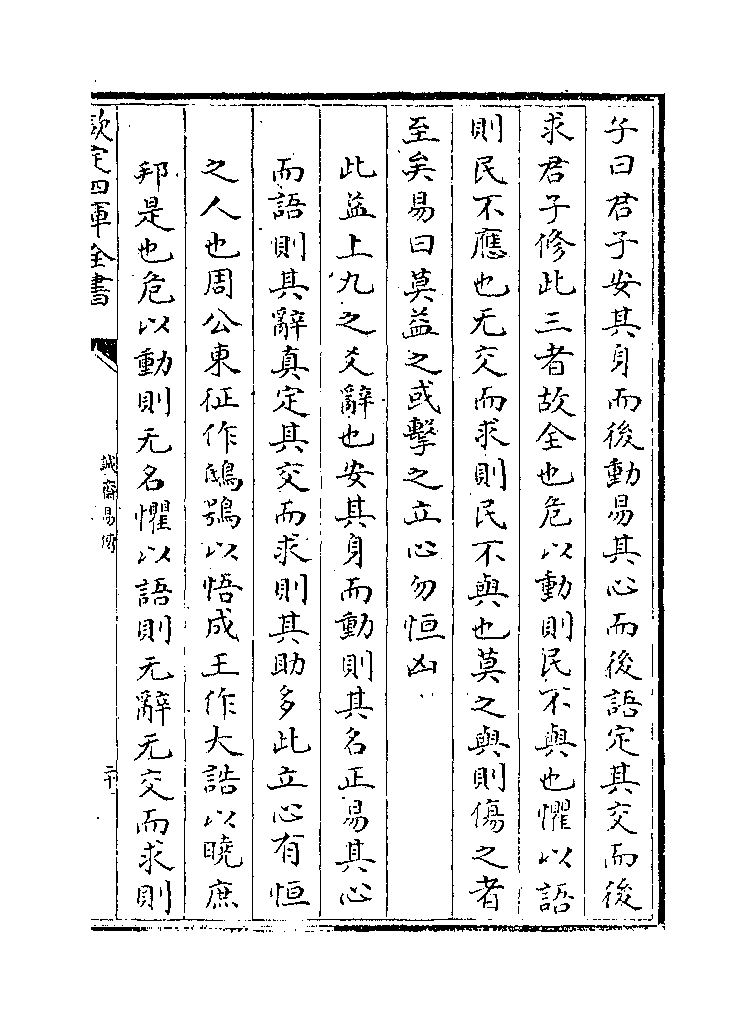 子曰君子安其身而後動易其心而後語定其交而後
求君子修此三者故全也危以動則民不與也懼以語
則民不應也无交而求則民不與也莫之與則傷之者
至矣易曰莫益之或擊之立心勿恒凶
此益上九之爻辭也安其身而動則其名正易其心
而語則其辭真定其交而求則其助多此立心有恒
之人也周公東征作鴟鴞以悟成王作大誥以曉庶
邦是也危以動則无名懼以語則无辭无交而求則
欽定四庫全書
誠齋易傳
二十